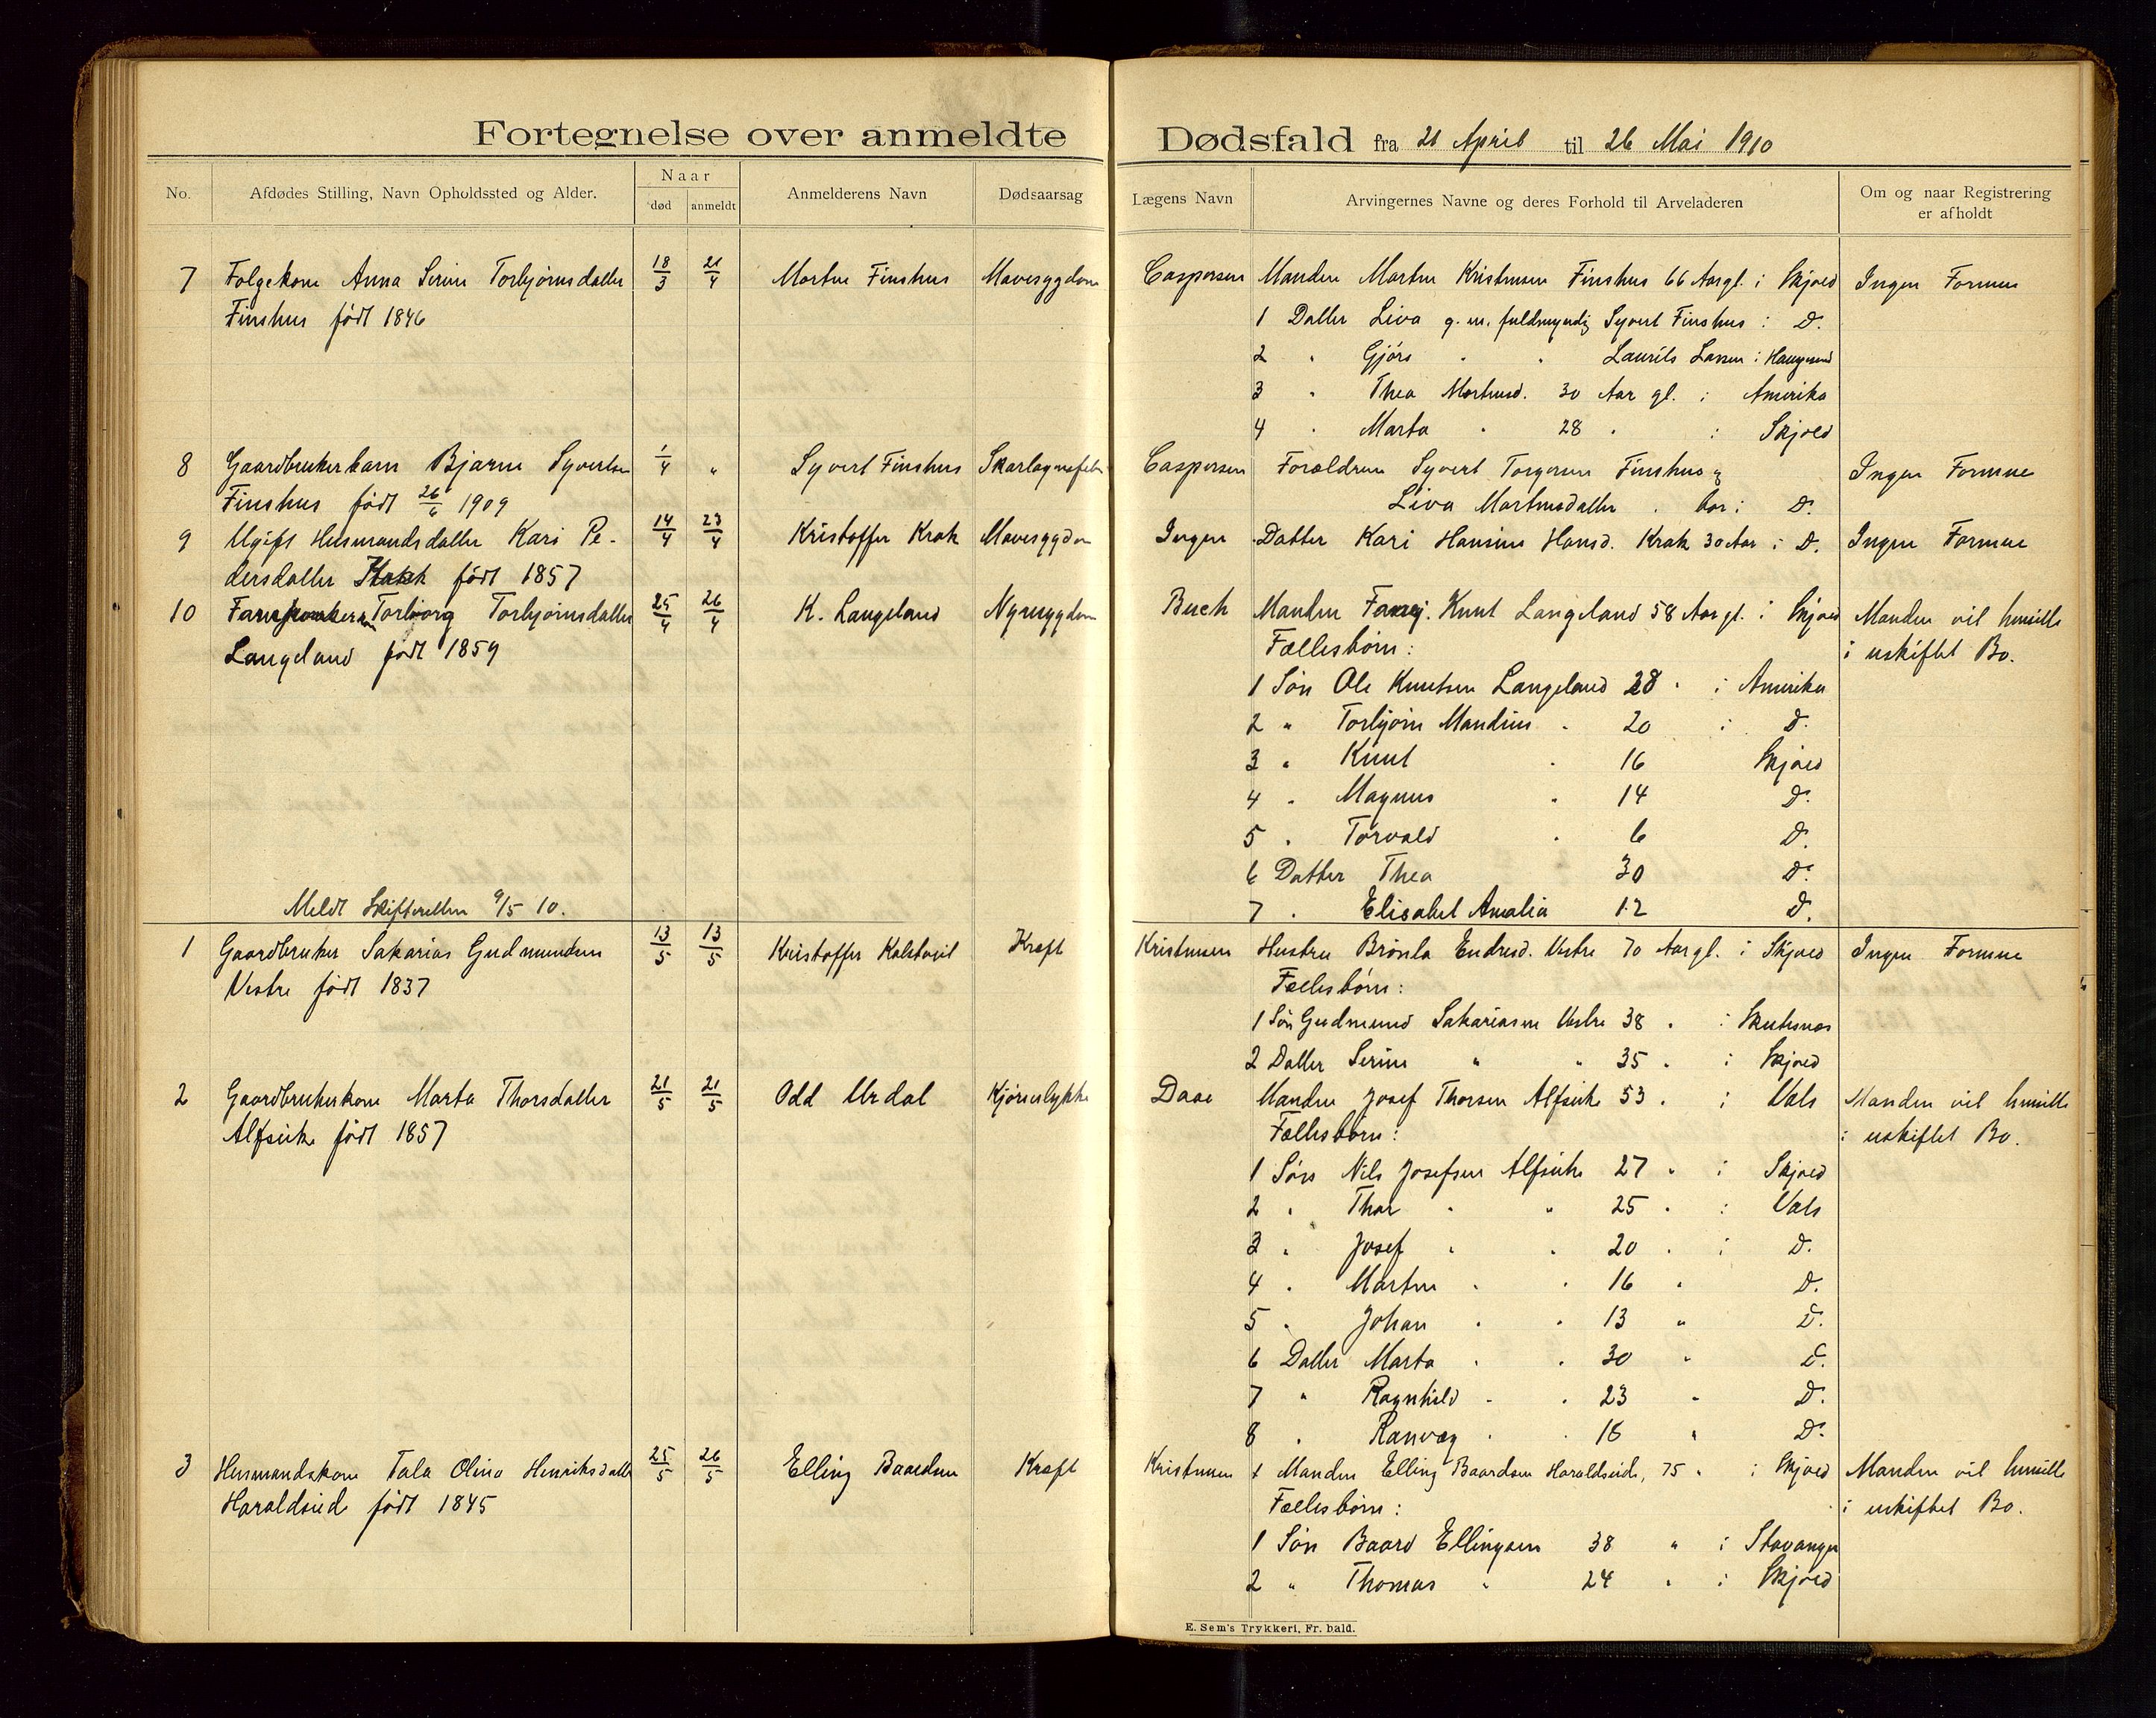 Fortegnelse over anmeldte Dødsfald fra 21 April til 26 Mai 1910
No. Afdødes Stilling, Navn Opholdssted og Alder. Naar død anmeldt Anmelderens Navn Dødsaarsag Lægens Navn Arvingernes Navne og deres Forhold til Arveladeren Om og naar Registrering er afholdt
7 Folgekone Anna Serine Torbjørnsdatter 18/3 21/4 Morten Finshus Mavesygdom Caspersen Manden Morten Kristensen Finshus 66 Aar gl. i Skjold Ingen Formue
Finshus født 1846 1 Datter Liva g. m. fuldmyndig Syvert Finshus i D.
2 " Gjórs " " Laurits Larsen i Haugesund
3 " Thea Mortensd. 30 Aar gl. i Amerika
4 " Marta " 28 " i Skjold
8 Gaardbrukerbarn Bjarne Syvertsen 1/4 " Syvert Finshus Skarlagensfeber Caspersen Forældrene Syvert Torgersen Finshus og Ingen Formue
Finshus født 26/6 1909 Liva Mortensdatter " bor i D.
9 Ugift Husmandsdatter Kari Pe- 14/4 23/4 Kristoffer Krak Mavesygdom Ingen Datter Kari Hansine Hansd. Krak 30 Aar i D. Ingen Formue
dersdatter Krak født 1857
10 Torborg Torbjørnsdatter 25/4 26/4 K. Langeland Nyresygdom Buch Manden Knut Langeland 58 Aar gl. i Skjold Manden vil hensitte
Langeland født 1859 Fællesbørn: i uskiftet Bo.
1 Søn Ole Knutsen Langeland 28 " i Amerika
2 " Torbjørn Mandius " 20 i D.
3 " Knut " 16 Skjold
4 " Magnus " 14 D.
5 " Torvald " 6 D.
6 Datter Thea 30 D.
Meldt Skifteretten 9/5 10. 7 " Elisabet Amalia 12 D.
1 Gaardbruker Sakarias Gudmundsen 13/5 13/5 Kristoffer Kalstveit Kræft Kristensen Hustru Brønla Endresd. Vestre 70 Aar gl. i Skjold Ingen Formue
Vestre født 1837 Fællesbørn:
1 Søn Gudmund Sakariasen Vestre 38 " i Skutesnæs
2 Datter Serine " " 35 " i Skjold
2 Gaardbrukerkone Marta Thorsdatter 21/5 21/5 Odd Urdal Daae Manden Josef Thorsen Alfseike 53 " i Vats Manden vil hensitte
Alfseike født 1857 Fællesbørn: i uskiftet Bo.
1 Søn Nils Josefsen Alfseike 27 " i Skjold
2 " Thor " " 25 " i Vats
3 " Josef " " 20 " i D.
4 " Morten " " 16 " D.
5 " Johan " " 13 " D.
6 Datter Marta " " 30 " D.
7 " Ragnhild " " 23 " D.
8 " Ranveg " " 18 " D.
3 Husmandskone Tala Olina Henriksdatter 25/5 26/5 Elling Baardsen Kræft Kristensen + Manden Elling Baardsen Haraldseide, 75 " i Skjold Manden vil hensitte
Haraldseid født 1845 Fællesbørn: i uskiftet Bo.
1 Søn Baard Ellingsen 38 " i Stavanger
2 " Thomas " 24 " i Skjold
E. Sem's Trykkeri, Fr. hald.